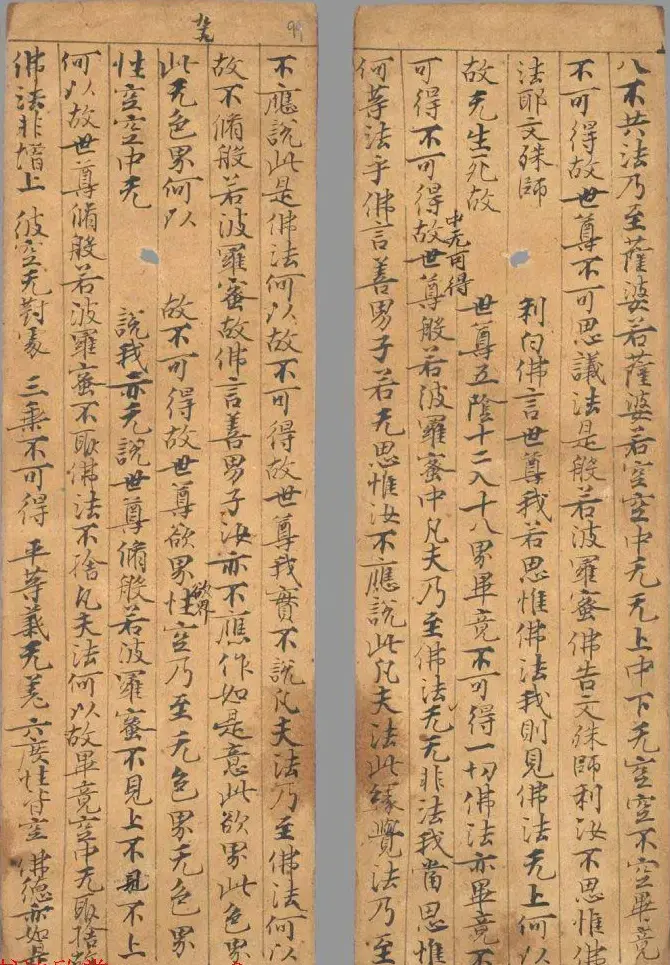 八不共法乃至薩婆若薩婆若空空中无无上中下无空空不空畢竟
不可得故世尊不可思議法是般若波羅蜜佛告文殊師利汝不思惟佛
法耶文殊師 利白佛言世尊我若思惟佛法我則見佛法无上何以
故无生死故 世尊五陰十二入十八界畢竟不可得一切佛法亦畢竟不
可得不可得中无可得故世尊般若波羅蜜中凡夫乃至佛法无无非法我當思惟
何等法乎佛言善男子若无思惟汝不應說此凡夫法此緣覺法乃至
99
不應說此是佛法何以故不可得故世尊我實不說凡夫法乃至佛法何以
故不脩般若波羅蜜故佛言善男子汝亦不應作如是意此欲界此色界
此无色界何以 故不可得故世尊欲界欲界性空乃至无色界无色界
性空空中无 說我亦无說世尊脩般若波羅蜜不見上不見不上
何以故世尊脩般若波羅蜜不取佛法不捨凡夫法何以故畢竟空中无取捨
佛法非增上 彼空无對 三乘不可得 平等義无差 六度性皆空 佛德亦如是